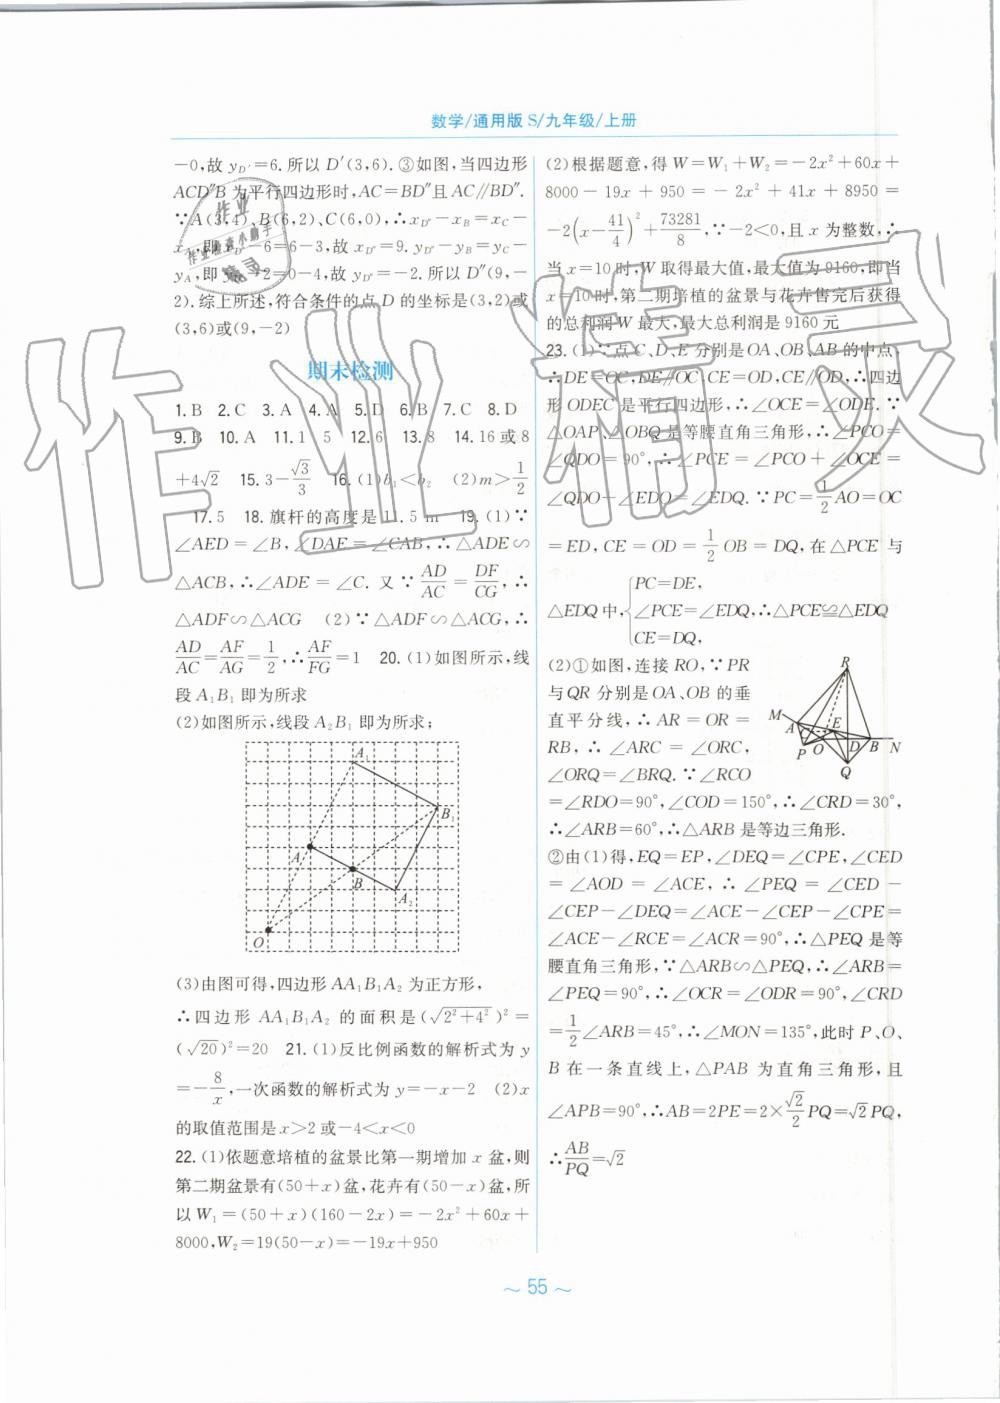 数学/通用版 S/九年级/上册
-0,故 y_D′=6.所以 D′(3,6).③如图,当四边形
ACD″B 为平行四边形时,AC=BD″且 AC∥BD″.
∵A(3,4),B(6,2),C(6,0),∴x_D″-x_B=x_C-
x_A,即 x_D″-6=6-3,故 x_D″=9. y_D″-y_B=y_C-
y_A,即 y_D″-2=0-4,故 y_D″=-2.所以 D″(9,-
2).综上所述,符合条件的点 D 的坐标是(3,2)或
(3,6)或(9,-2)
期末检测
1.B 2.C 3.A 4.A 5.D 6.B 7.C 8.D
9.B 10.A 11.1 5 12.6 13.8 14.16或8
+4√2 15.3-√3/3 16.(1)b₁<b₂ (2)m>1/2
17.5 18.旗杆的高度是11.5 m 19.(1)∵
∠AED=∠B,∠DAE=∠CAB,∴△ADE∽
△ACB,∴∠ADE=∠C. 又∵AD/AC=DF/CG,∴
△ADF∽△ACG (2)∵△ADF∽△ACG,∴
AD/AC=AF/AG=1/2,∴AF/FG=1 20.(1)如图所示,线
段 A₁B₁ 即为所求
(2)如图所示,线段 A₂B₁ 即为所求;
A₁
B₁
A
B
A₂
O
(3)由图可得,四边形 AA₁B₁A₂ 为正方形,
∴四边形 AA₁B₁A₂ 的面积是(√(2²+4²))²=
(√20)²=20 21.(1)反比例函数的解析式为 y
=-8/x,一次函数的解析式为 y=-x-2 (2)x
的取值范围是 x>2 或-4<x<0
22.(1)依题意培植的盆景比第一期增加 x 盆,则
第二期盆景有(50+x)盆,花卉有(50-x)盆,所
以 W₁=(50+x)(160-2x)=-2x²+60x+
8000,W₂=19(50-x)=-19x+950
(2)根据题意,得 W=W₁+W₂=-2x²+60x+
8000-19x+950=-2x²+41x+8950=
-2(x-41/4)²+73281/8,∵-2<0,且 x 为整数,∴
当 x=10 时,W 取得最大值,最大值为9160,即当
x=10 时,第二期培植的盆景与花卉售完后获得
的总利润 W 最大,最大总利润是 9160 元
23.(1)∵点 C、D、E 分别是 OA、OB、AB 的中点,
∴DE=OC,DE∥OC,CE=OD,CE∥OD,∴四边
形 ODEC 是平行四边形,∴∠OCE=∠ODE. ∵
△OAP、△OBQ 是等腰直角三角形,∴∠PCO=
∠QDO=90°,∴∠PCE=∠PCO+∠OCE=
∠QDO-∠EDO=∠EDQ. ∵PC=1/2AO=OC
=ED,CE=OD=1/2OB=DQ,在△PCE 与
△EDQ 中,{PC=DE,
∠PCE=∠EDQ,
CE=DQ, ∴△PCE≌△EDQ
(2)①如图,连接 RO,∵PR
与 QR 分别是 OA、OB 的垂
直平分线,∴AR=OR=
RB,∴∠ARC=∠ORC,
∠ORQ=∠BRQ.∵∠RCO
R
M
A
C
E
P
O
D
B
N
Q
=∠RDO=90°,∠COD=150°,∴∠CRD=30°,
∴∠ARB=60°,∴△ARB 是等边三角形.
②由(1)得,EQ=EP,∠DEQ=∠CPE,∠CED
=∠AOD=∠ACE,∴∠PEQ=∠CED-
∠CEP-∠DEQ=∠ACE-∠CEP-∠CPE=
∠ACE-∠RCE=∠ACR=90°,∴△PEQ 是等
腰直角三角形,∵△ARB∽△PEQ,∴∠ARB=
∠PEQ=90°,∴∠OCR=∠ODR=90°,∠CRD
=1/2∠ARB=45°,∴∠MON=135°,此时 P、O、
B 在一条直线上,△PAB 为直角三角形,且
∠APB=90°,∴AB=2PE=2×√2/2PQ=√2PQ,
∴AB/PQ=√2
～ 55 ～
作业精灵
作业
作业检查小助手
精灵